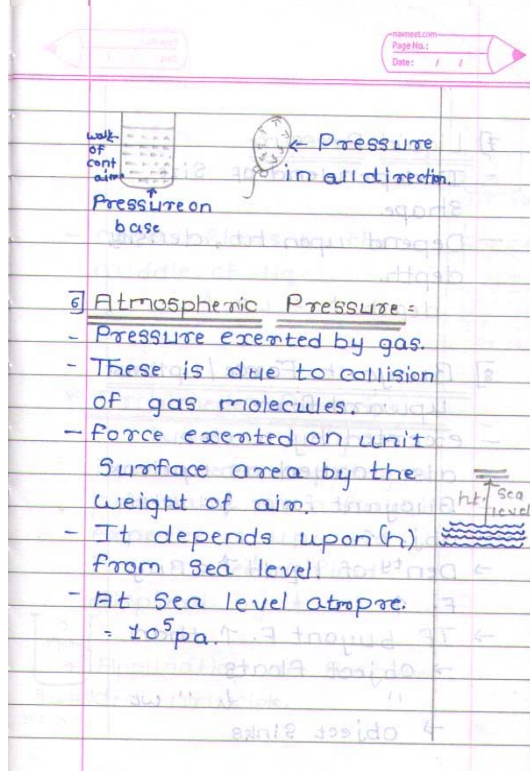 navneet.com
Page No.:
Date: / /
walls
of
cont
ainer
Pressure on
base
← Pressure
in all direction.
6] Atmospheric Pressure =
- Pressure exerted by gas.
- These is due to collision
of gas molecules.
- force exerted on unit
Surface area by the
weight of air.
- It depends upon (h)
from sea level.
- At sea level atmopre.
= 10⁵pa.
ht. sea
level